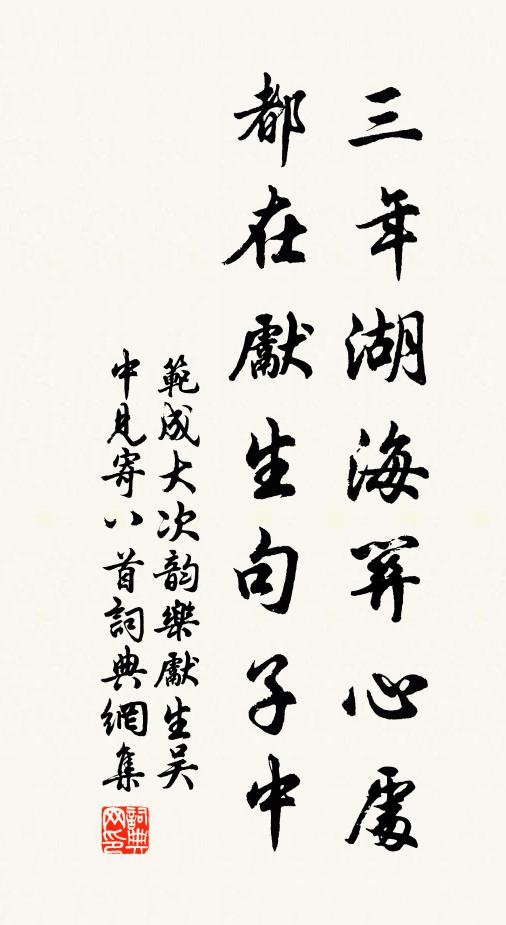 三年湖海關心處
都在獻生句子中
範成大次韵樂獻生吴
中見寄八首詞典網集
詞典网印